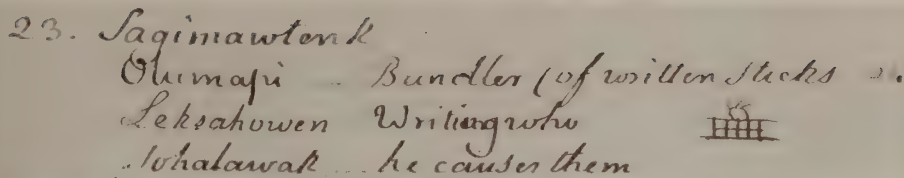 23. Sagimawtenk
Olumapi .. Bundler (of written sticks
Leksahowen Writing who
Sohalawak ... he causes them